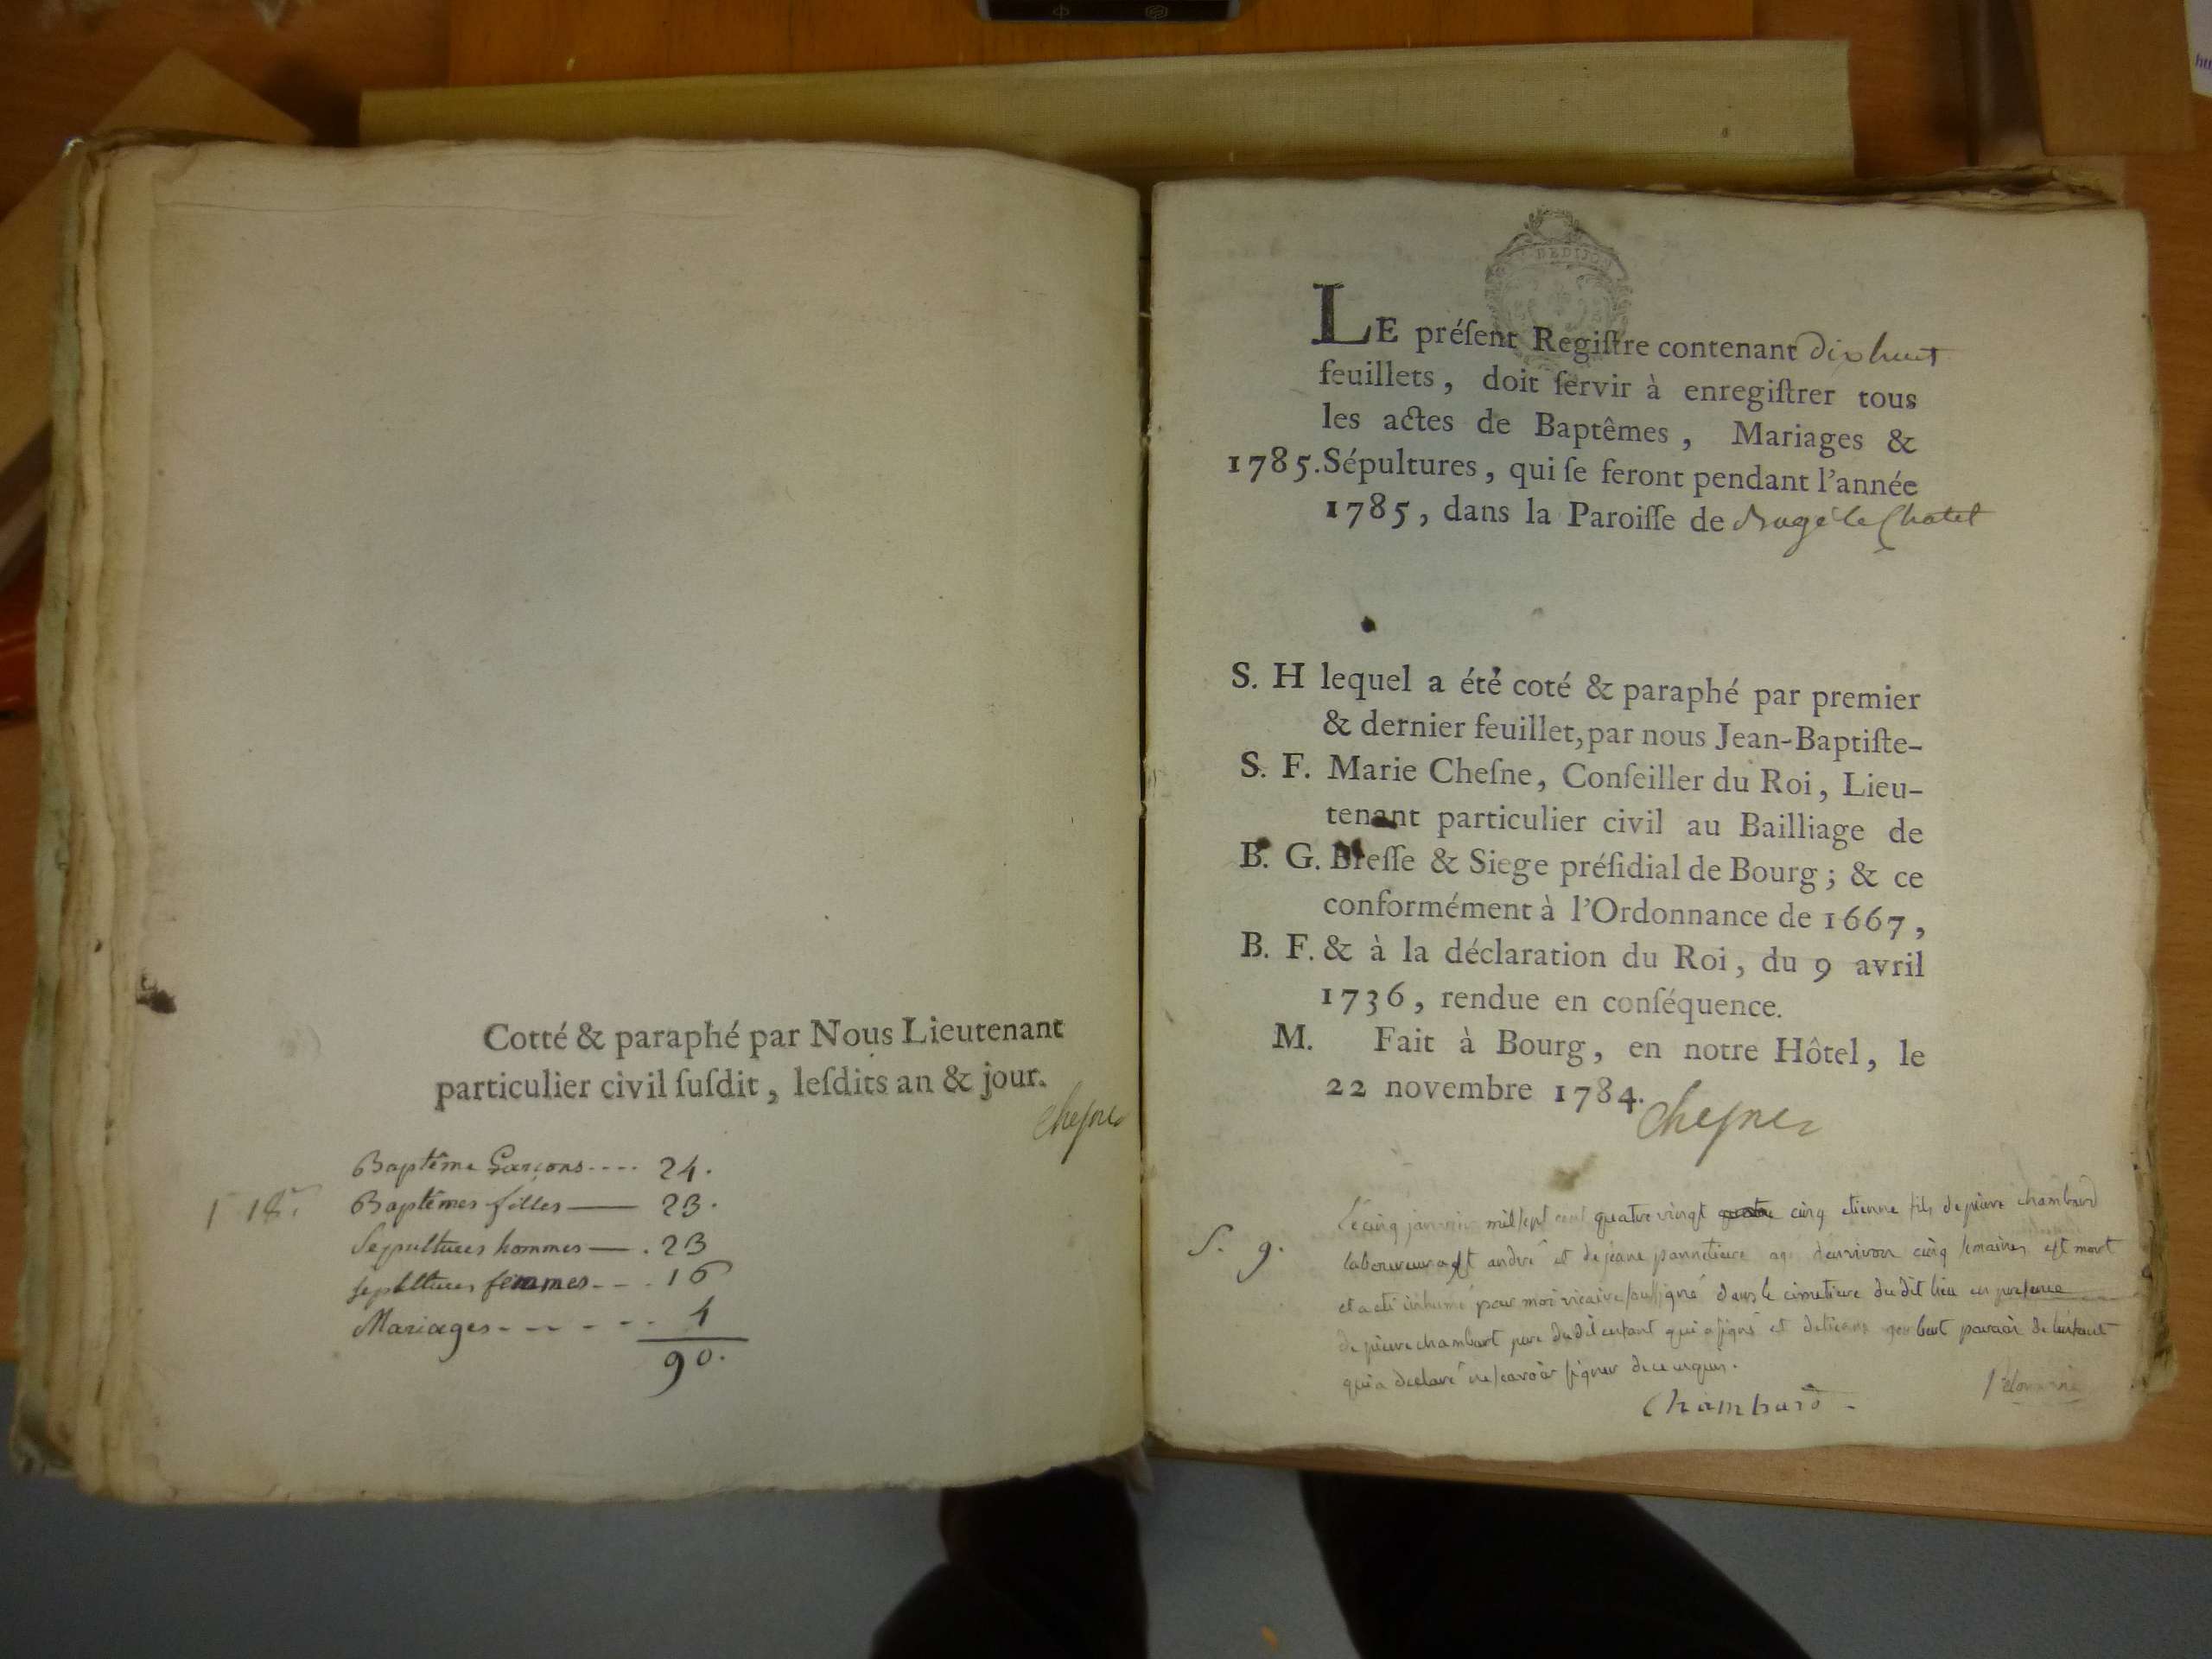 Cotté & paraphé par Nous Lieutenant
particulier civil ſuſdit, leſdits an & jour.
Cheſne
Baptême Garçons .... 24.
Baptêmes filles — 23.
Sepultures hommes — . 23
sepultures femmes - - . 16
Mariages - - - - - . 4
90.
LE préſent Regiſtre contenant dix huit
feuillets, doit ſervir à enregiſtrer tous
les actes de Baptêmes, Mariages &
1785. Sépultures, qui ſe feront pendant l'année
1785, dans la Paroiſſe de Bagé le Chatel
S. H lequel a été coté & paraphé par premier
& dernier feuillet, par nous Jean-Baptiſte-
S. F. Marie Cheſne, Conſeiller du Roi, Lieu-
tenant particulier civil au Bailliage de
B. G. Breſſe & Siege préſidial de Bourg; & ce
conformément à l'Ordonnance de 1667,
B. F. & à la déclaration du Roi, du 9 avril
1736, rendue en conſéquence.
M. Fait à Bourg, en notre Hôtel, le
22 novembre 1784.
Cheſne
Le cinq janvier mil ſept cent quatre vingt cinq etienne fils de pierre chambard
S. g. laboureur a St andré et de jeane pannetiere agé d'environ cinq ſemaines eſt mort
et a eté inhumé par moi vicaire ſouſſigné dans le cimetiere du dit lieu en preſence
de pierre chambart pere du dit enfant qui a ſigné et parain de l'enfant
qui a declaré ne ſcavoir ſigner de ce enquis.
Chambard